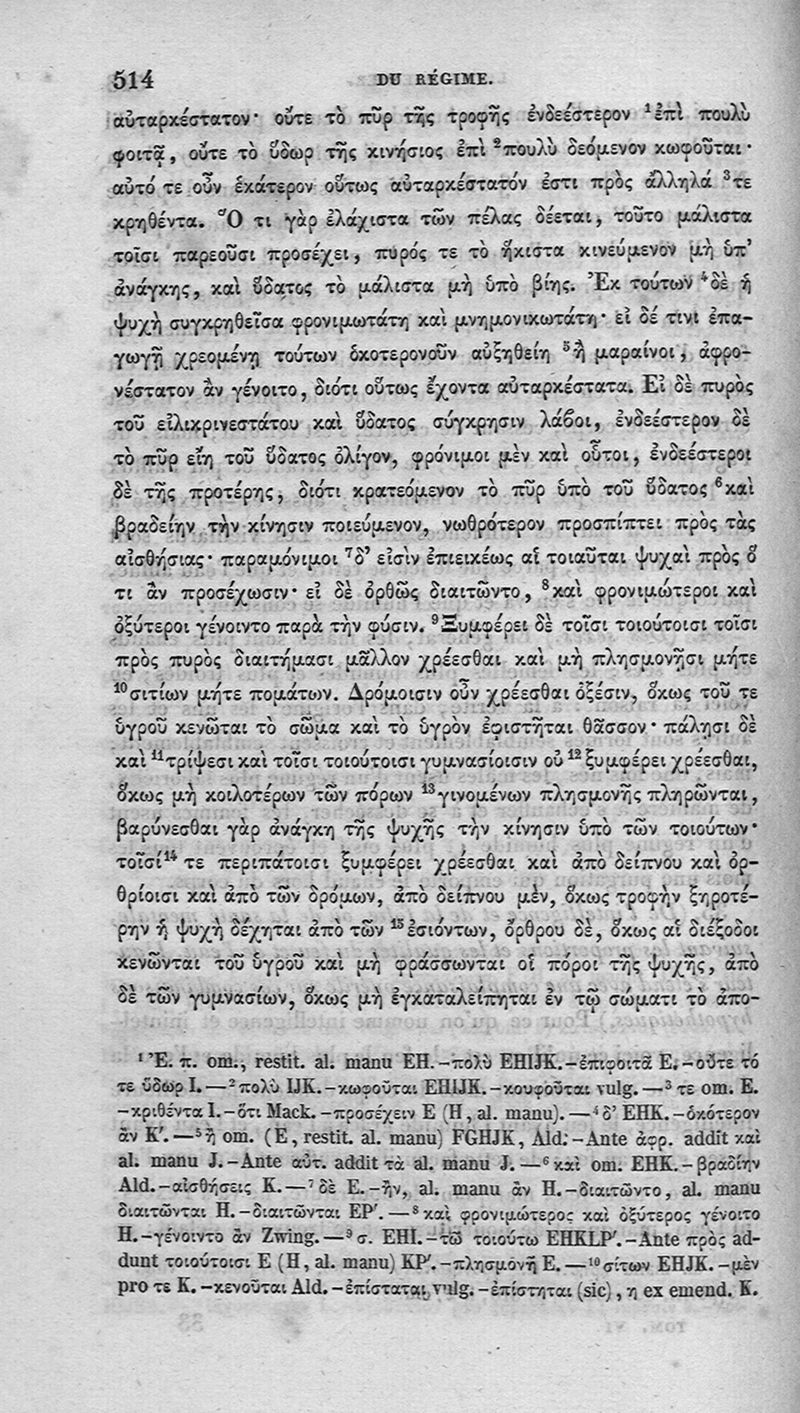 514 DU RÉGIME.
αὐταρκέστατον· οὔτε τὸ πῦρ τῆς τροφῆς ἐνδεέστερον ¹ἐπὶ πουλὺ
φοιτᾷ, οὔτε τὸ ὕδωρ τῆς κινήσιος ἐπὶ ²πουλὺ δεόμενον κωφοῦται·
αὐτό τε οὖν ἑκάτερον οὕτως αὐταρκέστατόν ἐστι πρὸς ἄλληλά ³τε
κρηθέντα. Ὅ τι γὰρ ἐλάχιστα τῶν πέλας δέεται, τοῦτο μάλιστα
τοῖσι παρεοῦσι προσέχει, πυρός τε τὸ ἥκιστα κινεύμενον μὴ ὑπ’
ἀνάγκης, καὶ ὕδατος τὸ μάλιστα μὴ ὑπὸ βίης. Ἐκ τούτων ⁴δὲ ἡ
ψυχὴ συγκρηθεῖσα φρονιμωτάτη καὶ μνημονικωτάτη· εἰ δέ τινι ἐπα-
γωγῇ χρεομένη τούτων ὁκοτερονοῦν αὐξηθείη ⁵ἢ μαραίνοι, ἀφρο-
νέστατον ἂν γένοιτο, διότι οὕτως ἔχοντα αὐταρκέστατα. Εἰ δὲ πυρὸς
τοῦ εἰλικρινεστάτου καὶ ὕδατος σύγκρησιν λάβοι, ἐνδεέστερον δὲ
τὸ πῦρ εἴη τοῦ ὕδατος ὀλίγον, φρόνιμοι μὲν καὶ οὗτοι, ἐνδεέστεροι
δὲ τῆς προτέρης, διότι κρατεόμενον τὸ πῦρ ὑπὸ τοῦ ὕδατος ⁶καὶ
βραδείην τὴν κίνησιν ποιεύμενον, νωθρότερον προσπίπτει πρὸς τὰς
αἰσθήσιας· παραμόνιμοι ⁷δ’ εἰσὶν ἐπιεικέως αἱ τοιαῦται ψυχαὶ πρὸς ὅ
τι ἂν προσέχωσιν· εἰ δὲ ὀρθῶς διαιτῶντο, ⁸καὶ φρονιμώτεροι καὶ
ὀξύτεροι γένοιντο παρὰ τὴν φύσιν. ⁹Ξυμφέρει δὲ τοῖσι τοιούτοισι τοῖσι
πρὸς πυρὸς διαιτήμασι μᾶλλον χρέεσθαι καὶ μὴ πλησμονῇσι μήτε
¹⁰σιτίων μήτε πομάτων. Δρόμοισιν οὖν χρέεσθαι ὀξέσιν, ὅκως τοῦ τε
ὑγροῦ κενῶται τὸ σῶμα καὶ τὸ ὑγρὸν ἐφιστῆται θᾶσσον· πάλῃσι δὲ
καὶ ¹¹τρίψεσι καὶ τοῖσι τοιούτοισι γυμνασίοισιν οὐ ¹²ξυμφέρει χρέεσθαι,
ὅκως μὴ κοιλοτέρων τῶν πόρων ¹³γινομένων πλησμονῆς πληρῶνται,
βαρύνεσθαι γὰρ ἀνάγκη τῆς ψυχῆς τὴν κίνησιν ὑπὸ τῶν τοιούτων·
τοῖσί¹⁴ τε περιπάτοισι ξυμφέρει χρέεσθαι καὶ ἀπὸ δείπνου καὶ ὀρ-
θρίοισι καὶ ἀπὸ τῶν δρόμων, ἀπὸ δείπνου μὲν, ὅκως τροφὴν ξηροτέ-
ρην ἡ ψυχὴ δέχηται ἀπὸ τῶν ¹⁵ἐσιόντων, ὄρθρου δὲ, ὅκως αἱ διέξοδοι
κενῶνται τοῦ ὑγροῦ καὶ μὴ φράσσωνται οἱ πόροι τῆς ψυχῆς, ἀπὸ
δὲ τῶν γυμνασίων, ὅκως μὴ ἐγκαταλείπηται ἐν τῷ σώματι τὸ ἀπο-
¹ Ἐ. π. om., restit. al. manu EH.-πολὺ EHIJK.-ἐπιφοιτᾷ E.-οὔτε τό
τε ὕδωρ I. — ² πολὺ IJK.-κωφοῦται EHIJK.-κουφοῦται vulg. — ³ τε om. E.
-κριθέντα I.-ὅτι Mack.-προσέχειν E (H, al. manu). — ⁴ δ’ EHK.-ὁκότερον
ἂν K'. — ⁵ ἢ om. (E, restit. al. manu) FGHJK, Ald.-Ante ἀφρ. addit καὶ
al. manu J.-Ante αὐτ. addit τὰ al. manu J. — ⁶ καὶ om. EHK.-βραδίην
Ald.-αἰσθήσεις K. — ⁷ δὲ E.-ἢν, al. manu ἂν H.-διαιτῶντο, al. manu
διαιτῶνται H.-διαιτῶνται EP'. — ⁸ καὶ φρονιμώτερος καὶ ὀξύτερος γένοιτο
H.-γένοιντο ἂν Zwing. — ⁹ σ. EHI.-τῷ τοιούτω EHKLP'.-Ante πρὸς ad-
dunt τοιούτοισι E (H, al. manu) KP'.-πλησμόνῇ E. — ¹⁰ σίτων EHJK.-μὲν
pro τε K.-κενοῦται Ald.-ἐπίσταται vulg.-ἐπίστηται (sic), η ex emend. K.